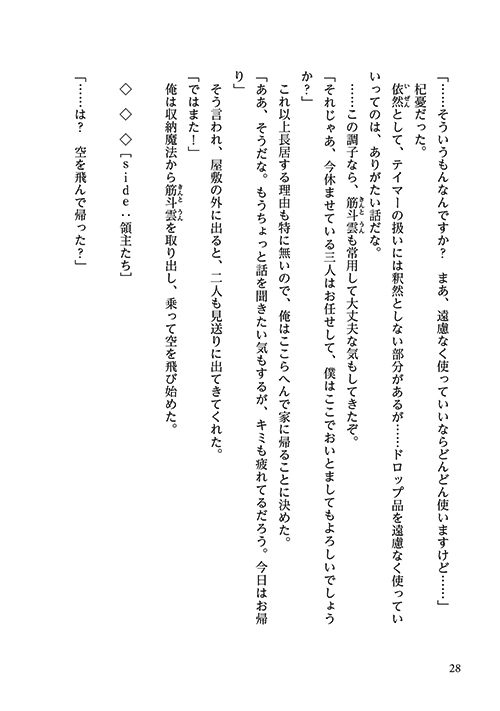 「……そういうもんなんですか？　まあ、遠慮なく使っていいならどんどん使いますけど……」
杞憂だった。
依然として、テイマーの扱いには釈然としない部分があるが……ドロップ品を遠慮なく使ってい
いってのは、ありがたい話だな。
……この調子なら、筋斗雲も常用して大丈夫な気もしてきたぞ。
「それじゃあ、今休ませている三人はお任せして、僕はここでおいとましてもよろしいでしょう
か？」
これ以上長居する理由も特に無いので、俺はここらへんで家に帰ることに決めた。
「ああ、そうだな。もうちょっと話を聞きたい気もするが、キミも疲れてるだろう。今日はお帰
り」
そう言われ、屋敷の外に出ると、二人も見送りに出てきてくれた。
「ではまた！」
俺は収納魔法から筋斗雲を取り出し、乗って空を飛び始めた。
◇　◇　◇［side：領主たち］
「……は？　空を飛んで帰った？」
28